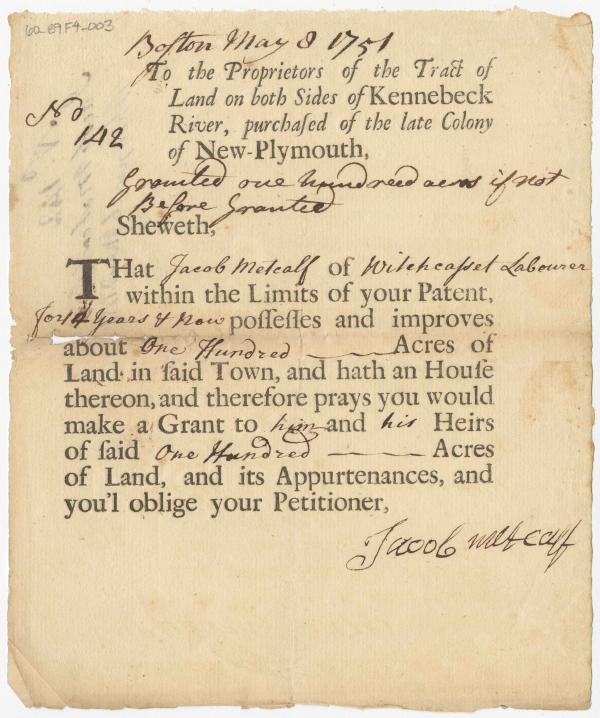 60-89F4-003
Boston May 8 1751
To the Proprietors of the Tract of
Land on both Sides of Kennebeck
River, purchaſed of the late Colony
of New-Plymouth,
No
142
Granted one hundreed acrs if not
Before Granted
Sheweth,
THat Jacob Metcalf of Witchcaſset Labourer
within the Limits of your Patent,
for 14 Years & Now poſſeſſes and improves
about One Hundred Acres of
Land in ſaid Town, and hath an Houſe
thereon, and therefore prays you would
make a Grant to him and his Heirs
of ſaid One Hundred Acres
of Land, and its Appurtenances, and
you'l oblige your Petitioner,
Jacob metcalf